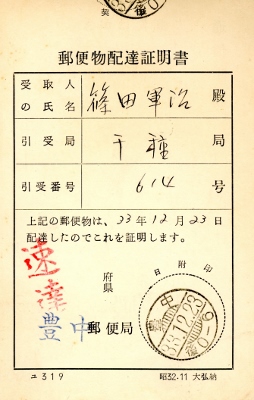 契
郵便物配達証明書
受取人の氏名 篠田軍治 殿
引受局 千種 局
引受番号 614 号
上記の郵便物は、33年12月23日
配達したのでこれを証明します。
速達
府県
日附印
豊中 郵便局
豊中
33.12.23
後0-6
ニ319
昭32.11 大弘納